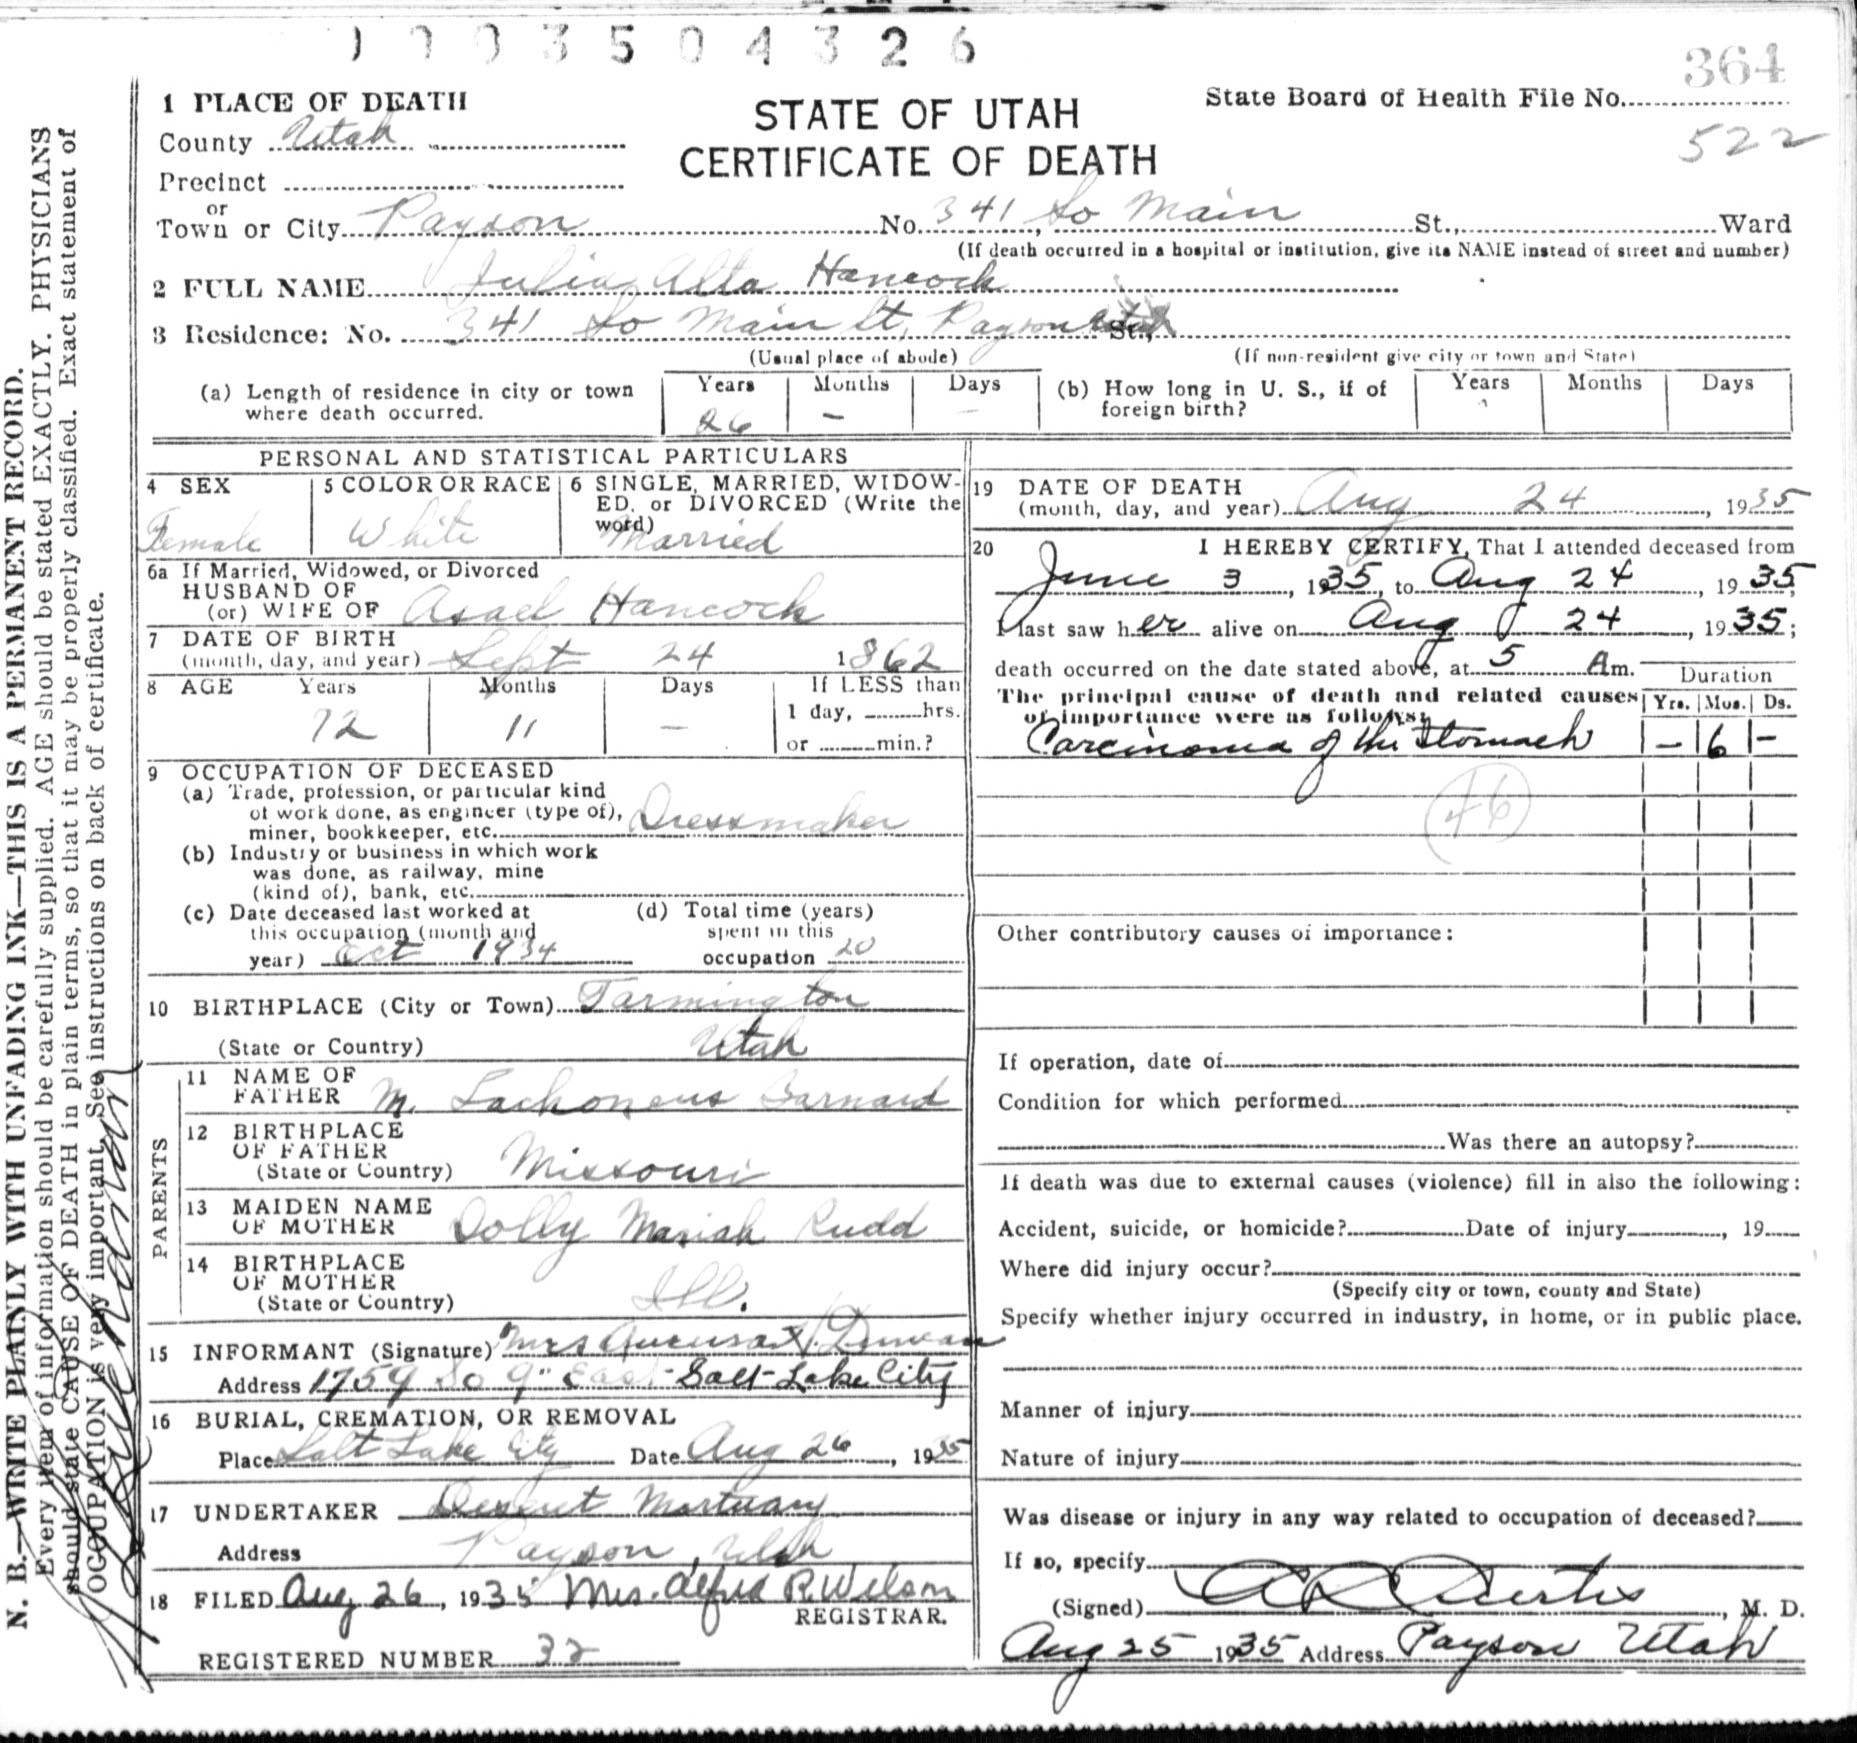 0003504326
364
1 PLACE OF DEATH
STATE OF UTAH
CERTIFICATE OF DEATH
State Board of Health File No.
522
County Utah
Precinct
or
Town or City Payson No. 341 So Main St., Ward
(If death occurred in a hospital or institution, give its NAME instead of street and number)
2 FULL NAME Julia Alta Hancock
3 Residence: No. 341 So Main St, Payson Utah St.,
(Usual place of abode) (If non-resident give city or town and State)
(a) Length of residence in city or town where death occurred. Years 26 Months - Days -
(b) How long in U. S., if of foreign birth? Years Months Days
PERSONAL AND STATISTICAL PARTICULARS
4 SEX Female
5 COLOR OR RACE White
6 SINGLE, MARRIED, WIDOW-
ED, or DIVORCED (Write the
word) Married
6a If Married, Widowed, or Divorced
HUSBAND OF
(or) WIFE OF Asael Hancock
7 DATE OF BIRTH
(month, day, and year) Sept 24 1862
8 AGE Years 72 Months 11 Days - If LESS than
1 day, hrs.
or min.?
9 OCCUPATION OF DECEASED
(a) Trade, profession, or particular kind
of work done, as engineer (type of),
miner, bookkeeper, etc. Dressmaker
(b) Industry or business in which work
was done, as railway, mine
(kind of), bank, etc.
(c) Date deceased last worked at
this occupation (month and
year) Oct 1934
(d) Total time (years)
spent in this
occupation 20
10 BIRTHPLACE (City or Town) Farmington
(State or Country) Utah
PARENTS
11 NAME OF
FATHER M. Lachoneus Barnard
12 BIRTHPLACE
OF FATHER
(State or Country) Missouri
13 MAIDEN NAME
OF MOTHER Dolly Mariah Rudd
14 BIRTHPLACE
OF MOTHER
(State or Country) Ill.
15 INFORMANT (Signature) Mrs H. Duncan
Address 1759 So 9" East Salt Lake City
16 BURIAL, CREMATION, OR REMOVAL
Place Salt Lake City Date Aug 26, 1935
17 UNDERTAKER Deseret Mortuary
Address Payson, Utah
18 FILED Aug 26, 1935 Mrs. Alfred R. Wilson
REGISTRAR.
REGISTERED NUMBER 32
19 DATE OF DEATH
(month, day, and year) Aug 24, 1935
20 I HEREBY CERTIFY, That I attended deceased from
June 3, 1935, to Aug 24, 1935;
I last saw her alive on Aug 24, 1935;
death occurred on the date stated above, at 5 Am.
Duration
The principal cause of death and related causes
of importance were as follows: Yrs. Mos. Ds.
Carcinoma of the Stomach - 6 -
46
Other contributory causes of importance:
If operation, date of
Condition for which performed
Was there an autopsy?
If death was due to external causes (violence) fill in also the following:
Accident, suicide, or homicide? Date of injury , 19
Where did injury occur?
(Specify city or town, county and State)
Specify whether injury occurred in industry, in home, or in public place.
Manner of injury
Nature of injury
Was disease or injury in any way related to occupation of deceased?
If so, specify
(Signed) Curtis, M. D.
Aug 25 1935 Address Payson Utah
N. B.—WRITE PLAINLY WITH UNFADING INK—THIS IS A PERMANENT RECORD.
Every item of information should be carefully supplied. AGE should be stated EXACTLY. PHYSICIANS
should state CAUSE OF DEATH in plain terms, so that it may be properly classified. Exact statement of
OCCUPATION is very important. See instructions on back of certificate.